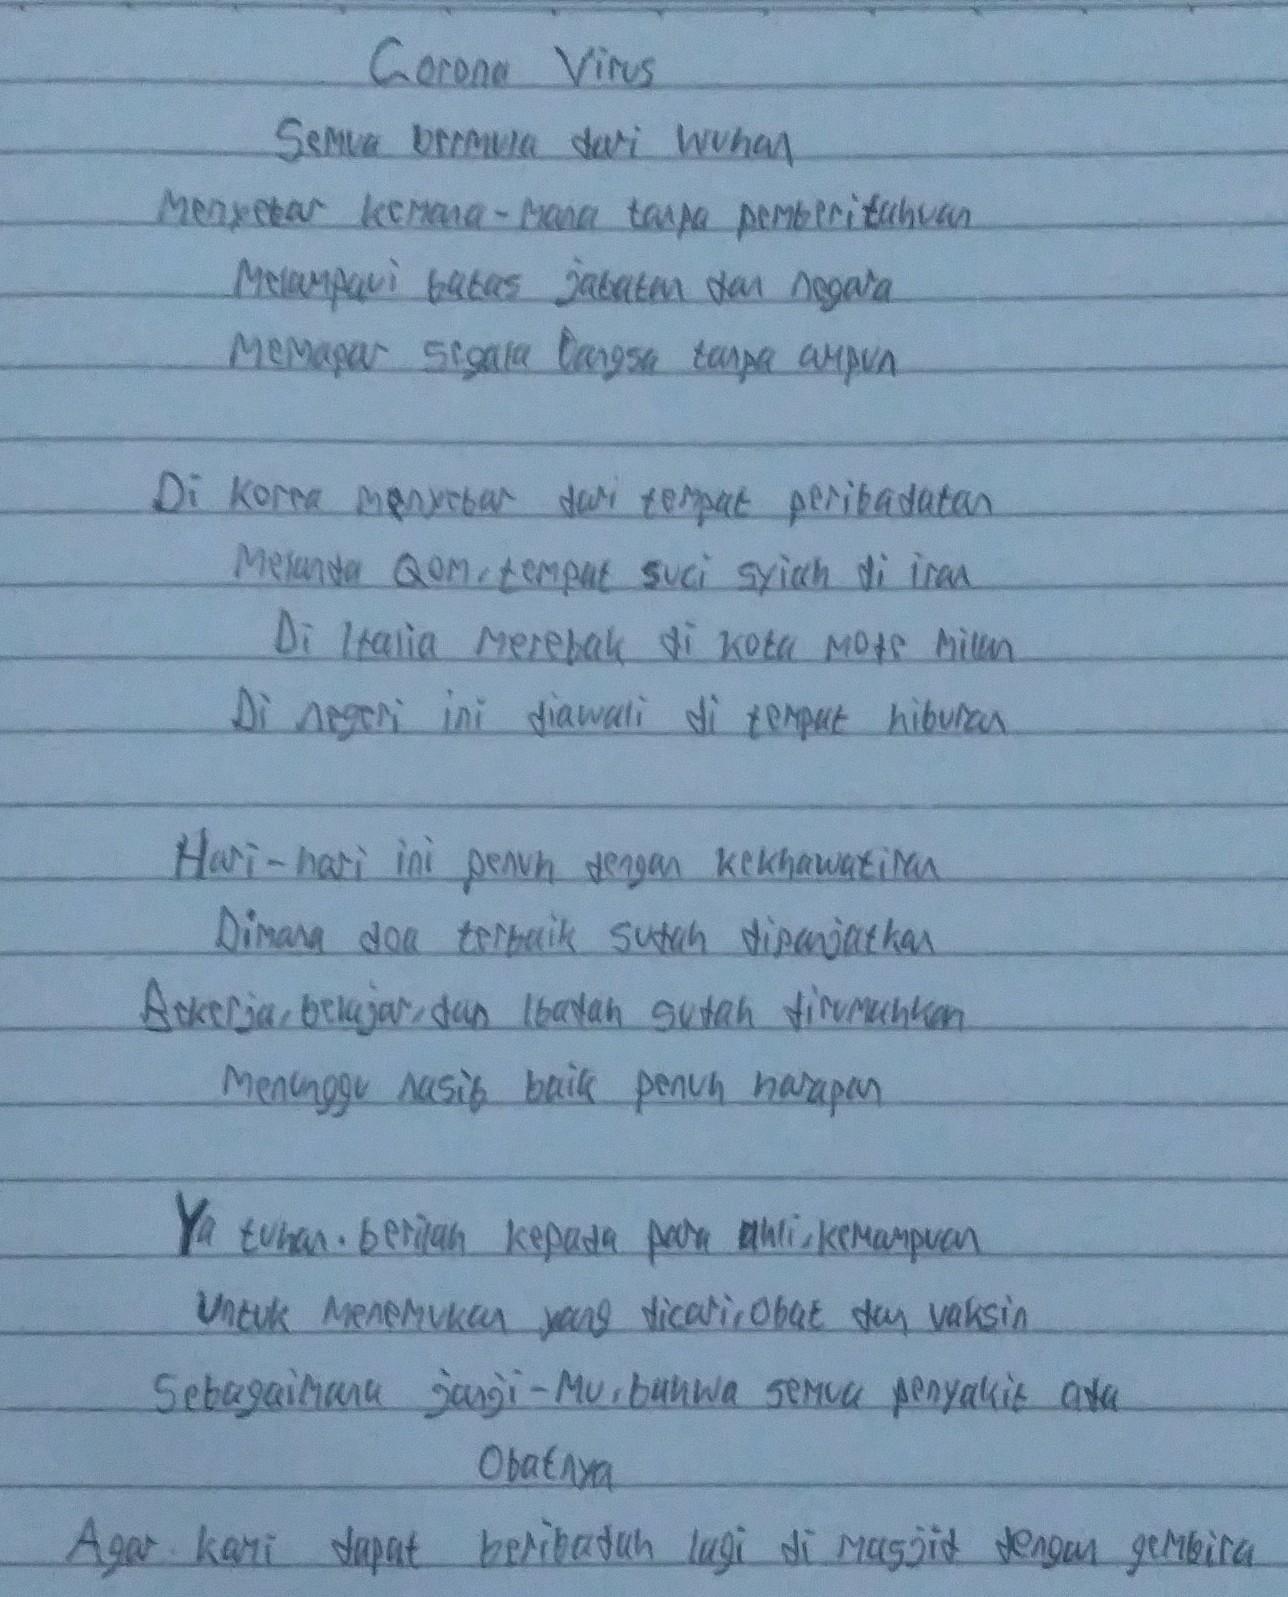 Corona Virus
Semua bermula dari Wuhan
Menyebar kemana-mana tanpa pemberitahuan
Melampaui batas jabatan dan negara
Memapar segala bangsa tanpa ampun
Di Korea menyebar dari tempat peribadatan
Melanda Qom, tempat suci syiah di iran
Di Italia merebak di kota mode Milan
Di negeri ini diawali di tempat hiburan
Hari-hari ini penuh dengan kekhawatiran
Dimana doa terbaik sudah dipanjatkan
Bekerja, belajar, dan Ibadah sudah dirumahkan
Menunggu nasib baik penuh harapan
Ya tuhan. berilah kepada para ahli, kemampuan
Untuk menemukan yang dicari, Obat dan vaksin
Sebagaimana janji-Mu, bahwa semua penyakit ada
Obatnya
Agar kami dapat beribadah lagi di masjid dengan gembira